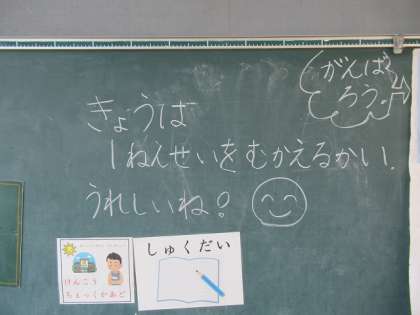 がんば
ろう。
きょうは
1ねんせいをむかえるかい.
うれしいね!
しゅくだい
けんこう
ちぇっくかあど